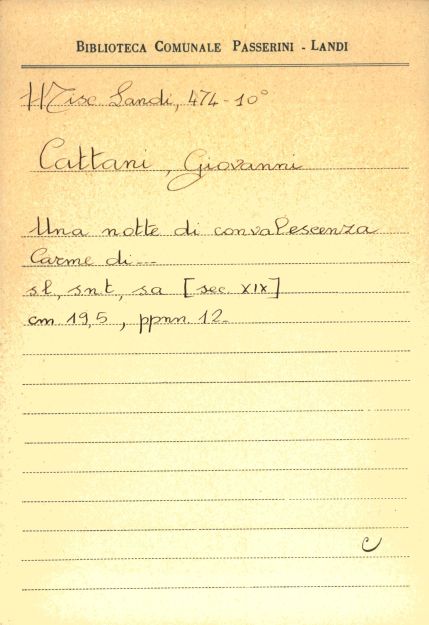 BIBLIOTECA COMUNALE PASSERINI - LANDI
Misc Landi, 474-10°
Cattani, Giovanni
Una notte di convalescenza
Carme di...
sl, snt, sa [sec. XIX]
cm 19,5, ppnn. 12.
C